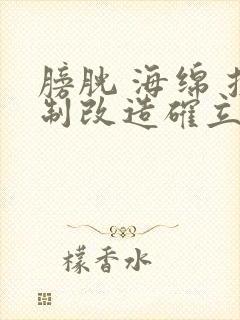 膀胱 海绵
制改造確立
檬香水